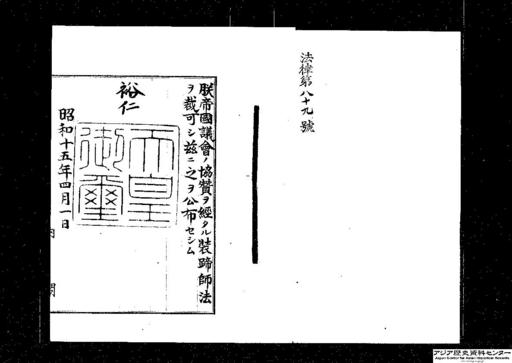 法律第八十九號
朕帝國議會ノ協贊ヲ經タル裝蹄師法
ヲ裁可シ茲ニ之ヲ公布セシム
裕仁
天皇
御璽
昭和十五年四月一日
内閣
アジア歴史資料センター
Japan Center for Asian Historical Records